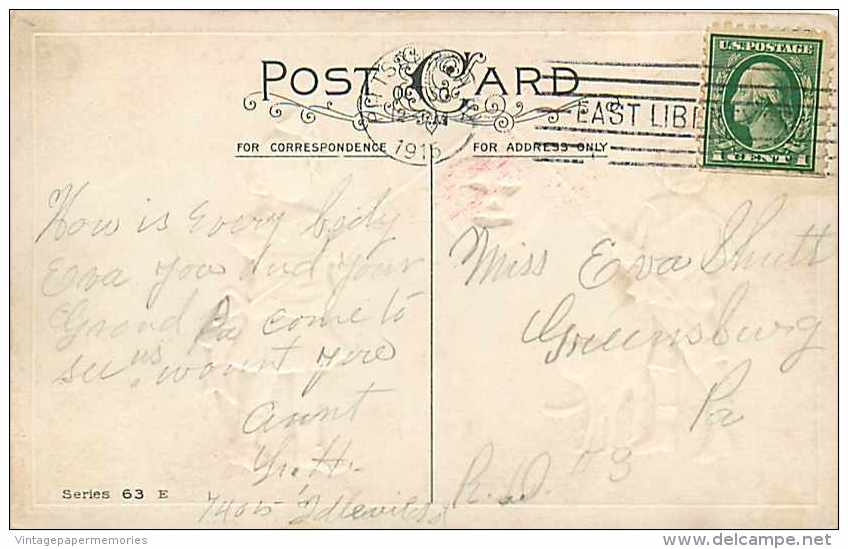 POST CARD
FOR CORRESPONDENCE
FOR ADDRESS ONLY
1915
EAST LIB
U.S.POSTAGE
1 CENT 1
How is Every body
Eva you and your
Grand Pa come to
see us, wount yere
aunt
7405
Miss Eva Shutt
Greensburg
Pa
R.D. #3
Series 63 E
Vintagepapermemories
delcampe.net